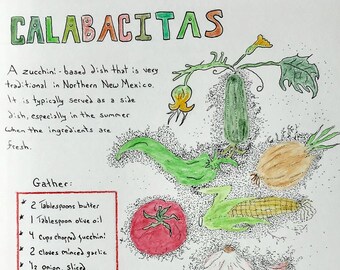 CALABACITAS
A zucchini-based dish that is very
traditional in Northern New Mexico.
It is typically served as a side
dish, especially in the summer
when the ingredients are
fresh.
Gather:
* 2 Tablespoons butter
* 1 Tablespoon olive oil
* 4 cups chopped zucchini
* 2 cloves minced garlic
* 1/2 onion, sliced